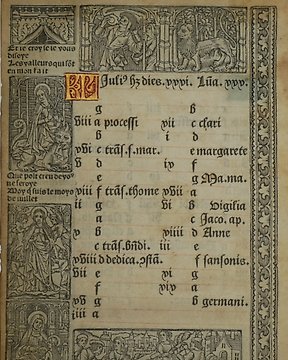 Et ie croy se ie vous
disoye
Les valleurs qui sõt
en mon fait
Que poit creu de vo
ne seroye
Moy q̃ suis le moys
de iuillet
KL Juliꝰ hꝫ dies.xxxi. Lũa.xxx.
g b
viii a processi xii c clari
b i d
xvi c trãs.f.mar. e margarete
v d ix f
e g Ma.ma.
xiii f trãs.thome xvii a
ii g vi b Vigilia
a c Jaco. ap.
x b xiiii d Anne
c trãs.bñdi. iii e
xviii d dedica. f sansonis.
vii e xi g
f xix a
xv g b germani.
iiii a